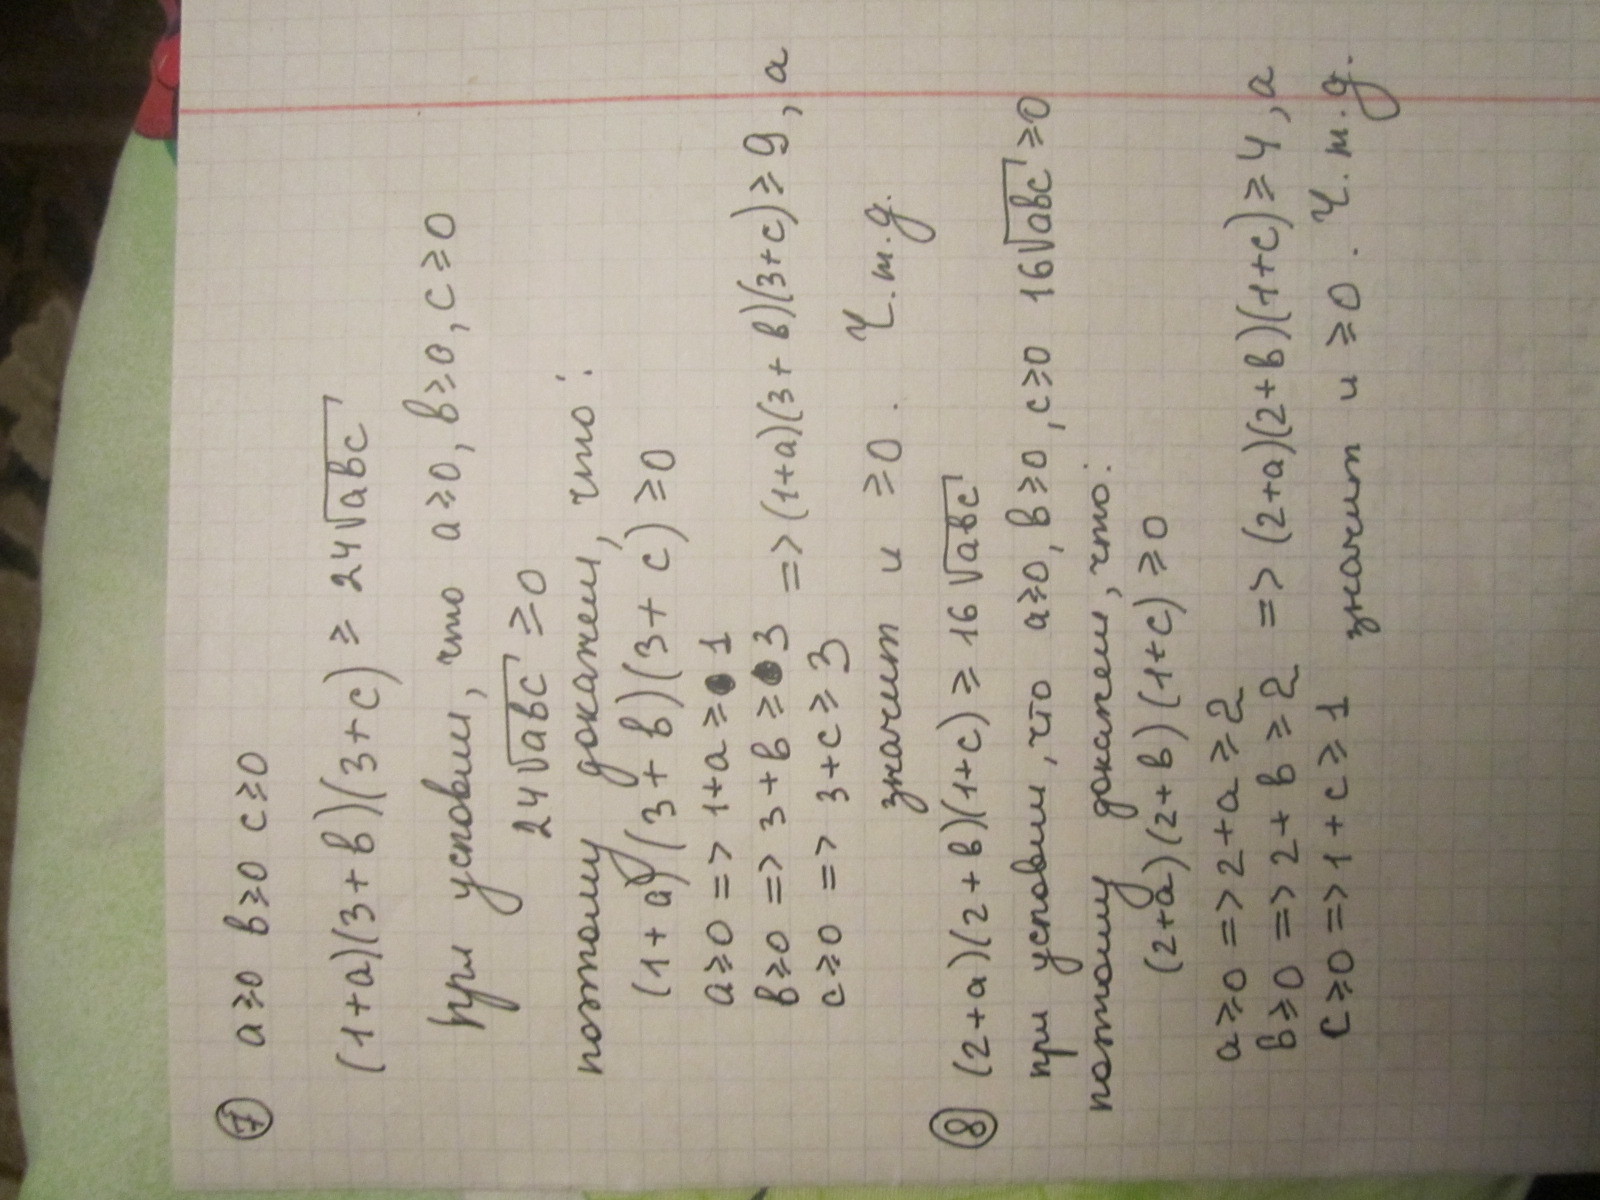 ⑦ a≥0 в≥0 c≥0
(1+a)(3+в)(3+c) ≥ 24√aвc
при условии, что a≥0, в≥0, c≥0
24√aвc ≥0
поэтому докажем, что:
(1+a)(3+в)(3+c)≥0
a≥0 => 1+a≥1
в≥0 => 3+в≥3 => (1+a)(3+в)(3+c)≥9, а
c≥0 => 3+c≥3
значит и ≥0. Ч.т.д.
⑧ (2+a)(2+в)(1+c) ≥ 16√aвc
при условии, что a≥0, в≥0, c≥0 16√aвc ≥0
поэтому докажем, что:
(2+a)(2+в)(1+c)≥0
a≥0 => 2+a≥2
в≥0 => 2+в≥2 => (2+a)(2+в)(1+c)≥4, а
c≥0 => 1+c≥1 значит и ≥0. Ч.т.д.